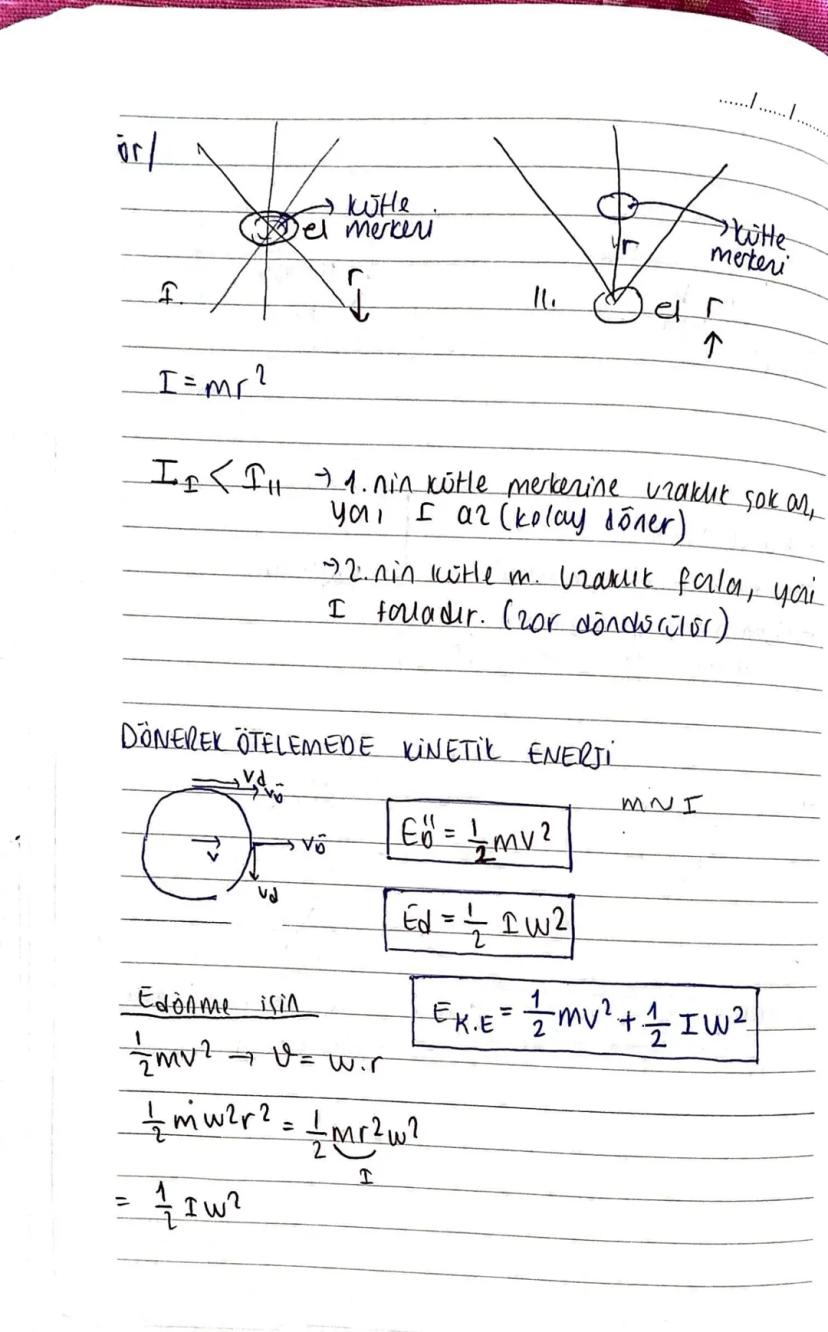 ....../....../......
ör/
kütle
el merkezi
kütle
merkezi
r
I.
r
↓
II.
el r
↑
I = mr²
I_I < I_II → 1. nin kütle merkezine uzaklık çok az,
yani I az (kolay döner)
→ 2. nin kütle m. uzaklık fazla, yani
I fazladır. (zor döndürülür)
DÖNEREK ÖTELEMEDE KİNETİK ENERJİ
Vd
Vö
V
Vö
Vd
Eö = 1/2 mv²
m ~ I
Ed = 1/2 I w²
Edönme için
E K.E = 1/2 mv² + 1/2 I W²
1/2 mv² → V = w.r
1/2 m w²r² = 1/2 mr²w²
I
= 1/2 I w²